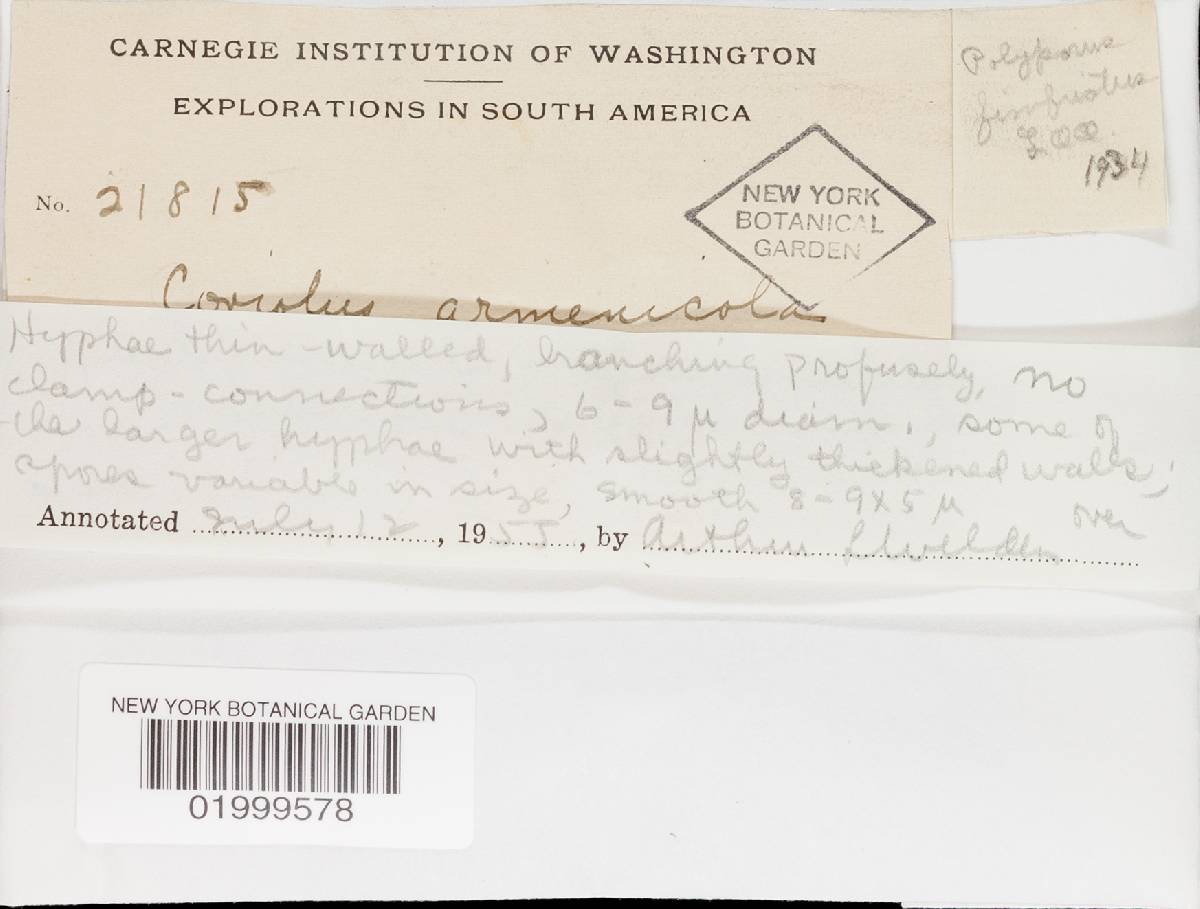 CARNEGIE INSTITUTION OF WASHINGTON
EXPLORATIONS IN SOUTH AMERICA
No. 21815
NEW YORK
BOTANICAL
GARDEN
Coriolus armenicola
Polyporus
fimbriatus
1934
Hyphae thin-walled, branching profusely, no
clamp-connections, 6-9 µ diam., some of
the larger hyphae with slightly thickened walls;
spores variable in size, smooth 8-9x5 µ
over
Annotated July 12, 1955, by Arthur L Welden
NEW YORK BOTANICAL GARDEN
01999578